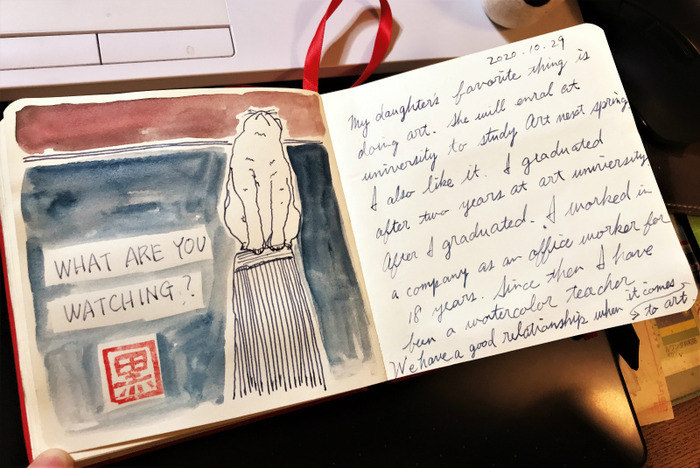 WHAT ARE YOU
WATCHING?
2020.10.29
My daughter's favorite thing is
doing art. She will enral at
university to study Art next spring
I also like it. I graduated
after two years at art university
After I graduated. I worked in
a company as an office worker for
18 years. Since then I have
been a watercolor teacher.
We have a good relationship when it comes
to art